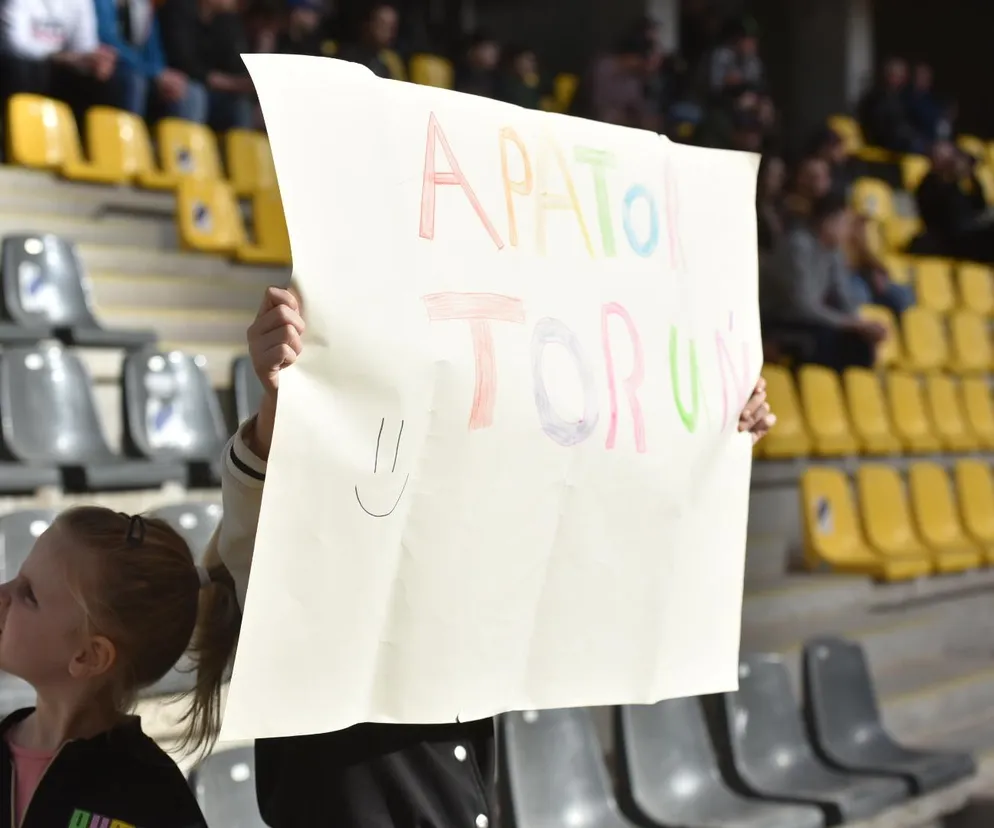 APATOR
TORUŃ